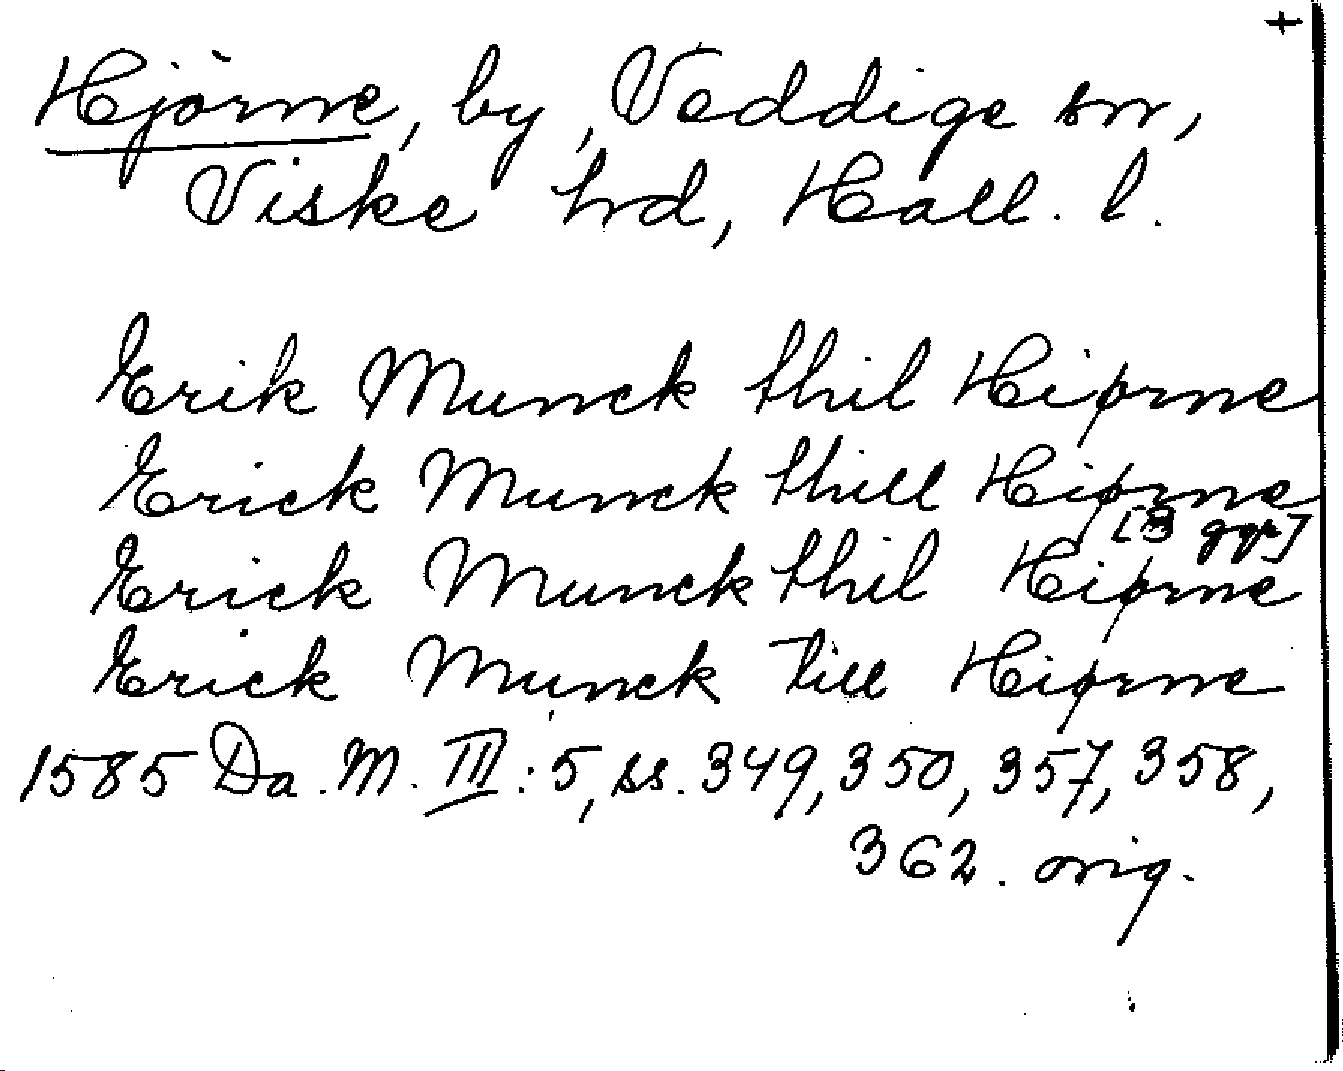 +
Hjörne, by, Veddige sn,
Viske hd, Hall. l.
Erik Munck thil Hiørne
Erick Munck thill Hiørne
[3 ggr]
Erick Munck thil Hiørne
Erick Munck till Hiørne
1585 Da. M. III:5, ss. 349, 350, 357, 358,
362. orig.